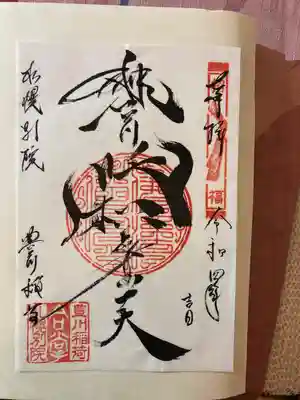 奉拝
令和四年
吉日
豐川吒枳尼眞天
札幌別院
豊川稲荷
豊川稲荷
札幌別院